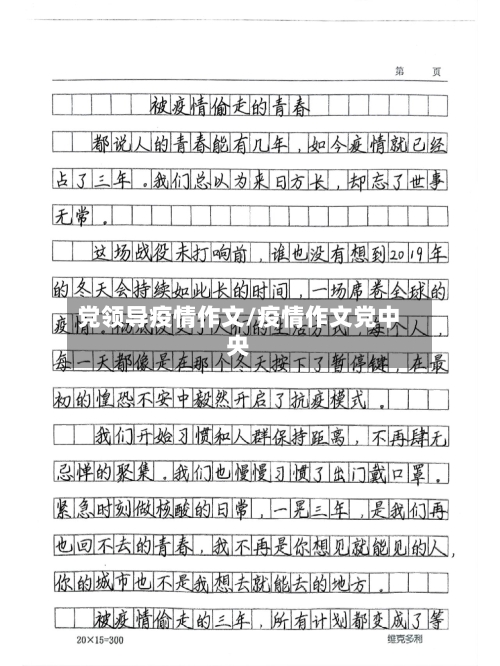 第 页
被疫情偷走的青春
都说人的青春能有几年，如今疫情就已经
占了三年。我们总以为来日方长，却忘了世事
无常。
这场战役未打响前，谁也没有想到2019年
的冬天会持续如此长的时间，一场席卷全球的
疫情
党领导疫情作文/疫情作文党中
央
的生活方式，每个人，
每一天都像是在那个冬天按下了暂停键，在最
初的惶恐不安中毅然开启了抗疫模式。
我们开始习惯和人群保持距离，不再肆无
忌惮的聚集。我们也慢慢习惯了出门戴口罩。
紧急时刻做核酸的日常，一晃三年，是我们再
也回不去的青春，我不再是你想见就能见的人，
你的城市也不是我想去就能去的地方。
被疫情偷走的三年，所有计划都变成了等
20×15=300 维克多利